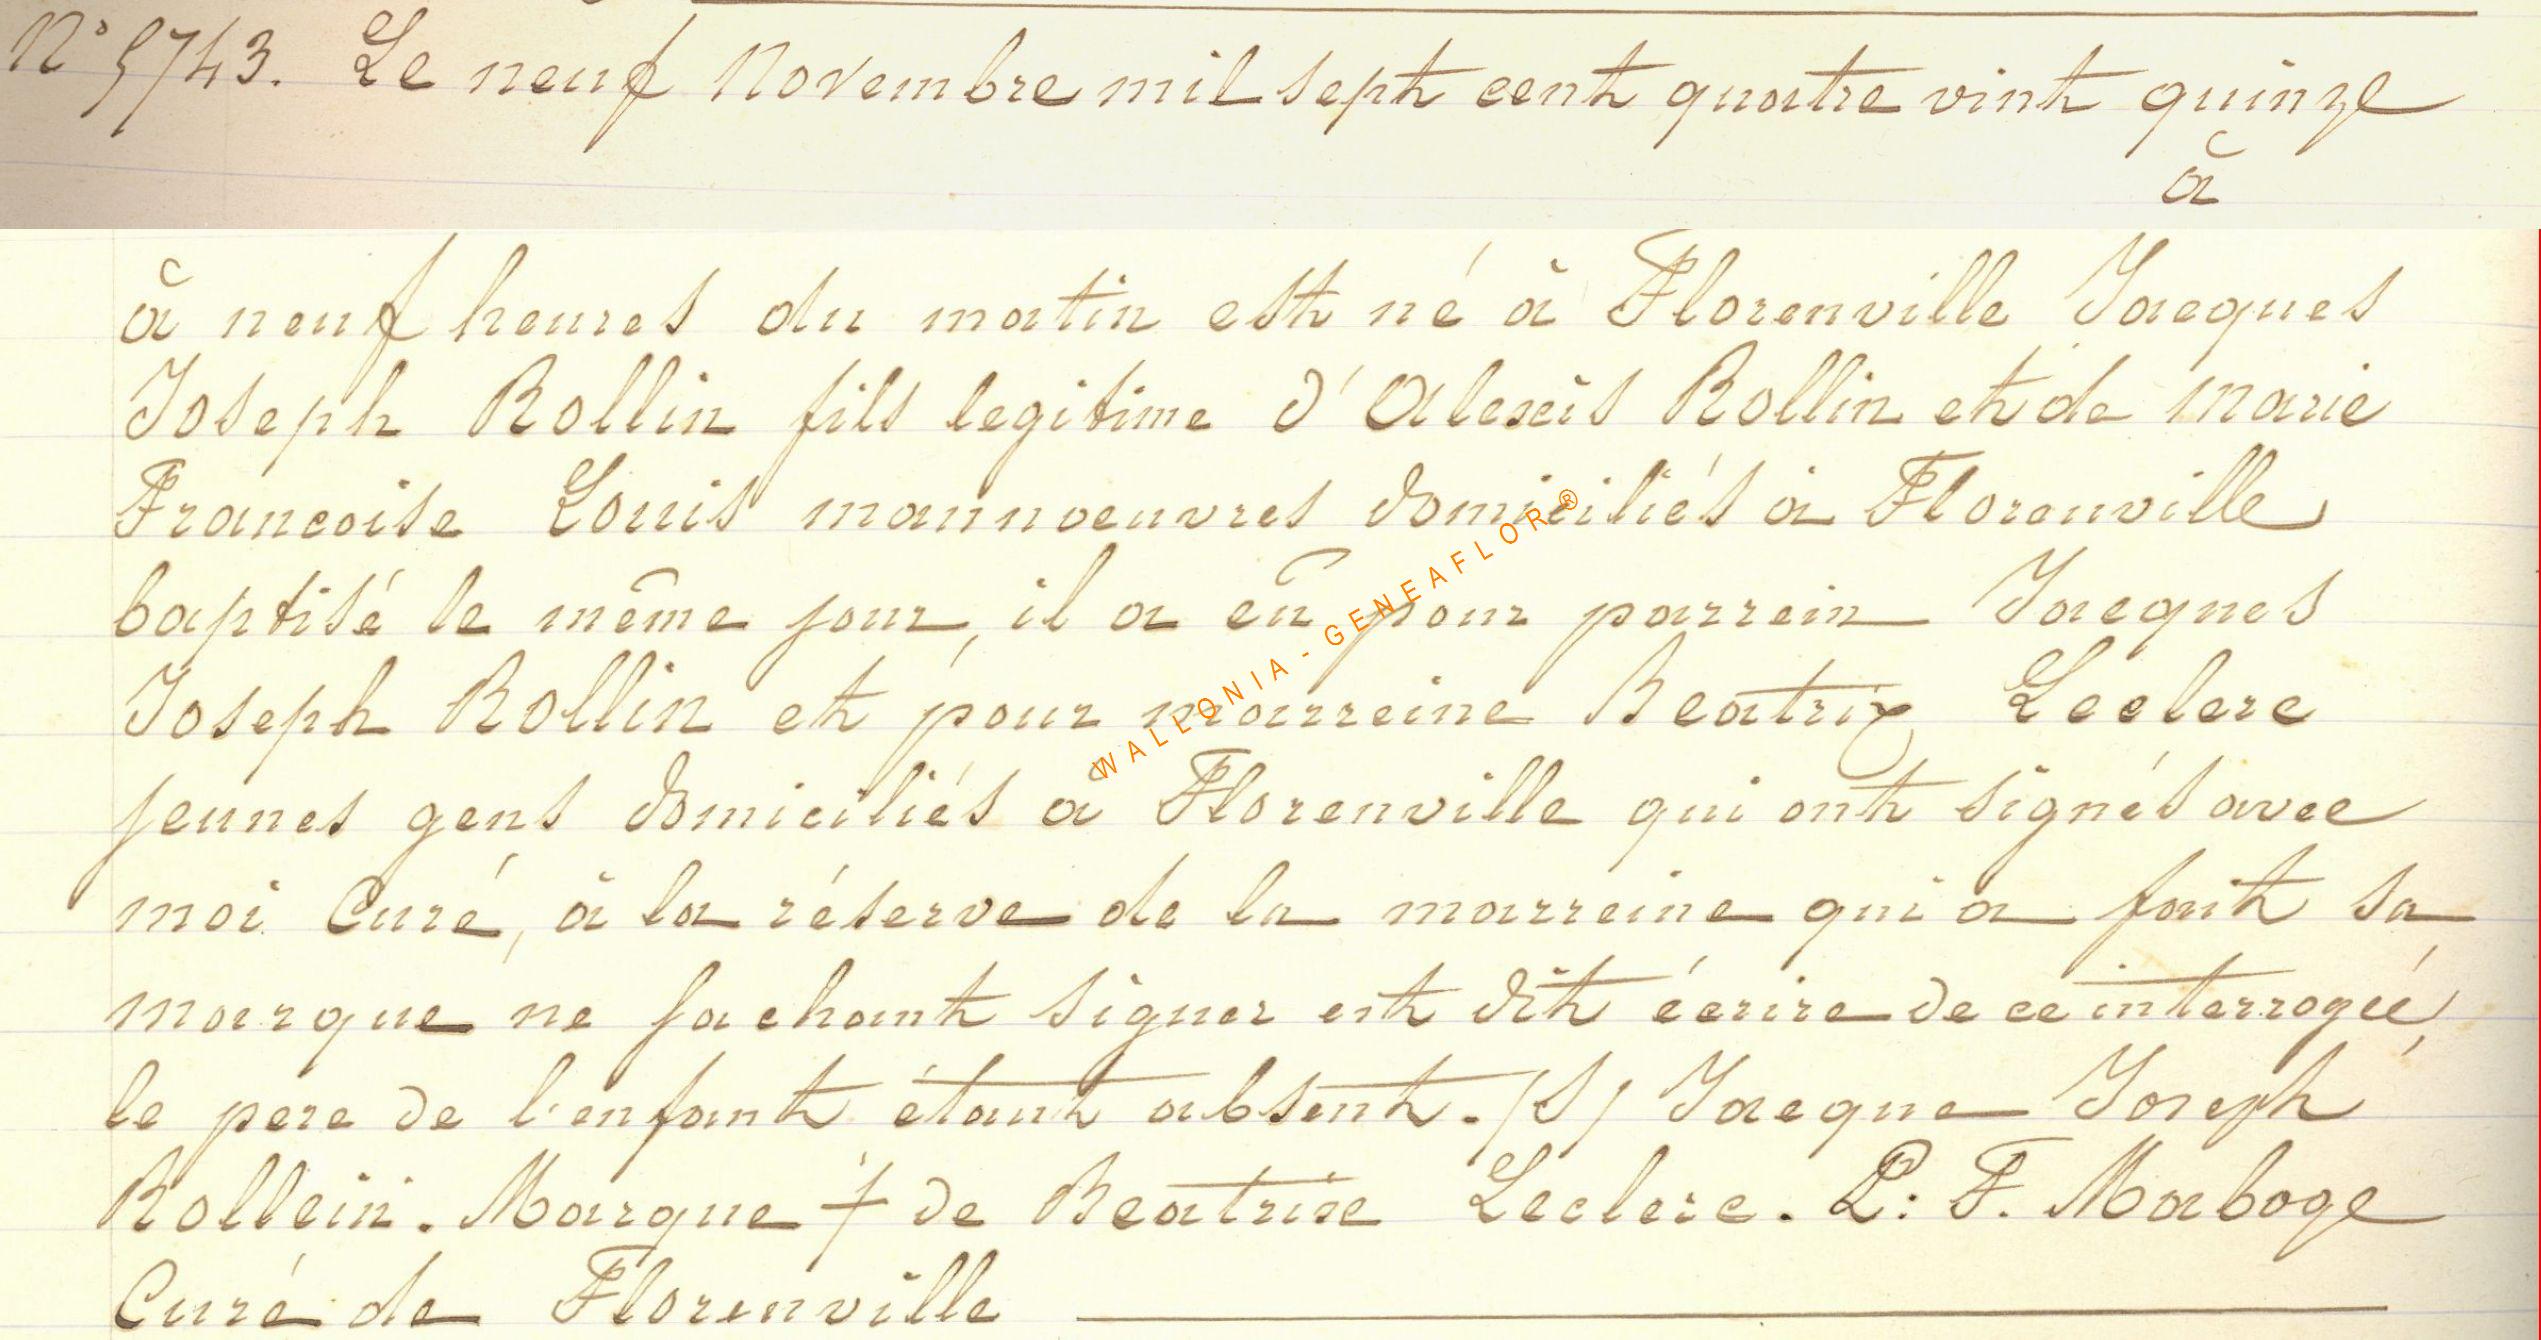 N° 5743. Le neuf Novembre mil sept cent quatre vint quinze
à
à neuf heures du matin est né à Florenville Jacques
Joseph Rollin fils legitime d'Alexis Rollin et de Marie
Francoise Louis mannoeuvres domiciliés à Florenville
baptisé le même jour, il a eû pour parrein Jacques
Joseph Rollin et pour marreine Beatrix Leclere
jeunes gens domiciliés à Florenville qui ont signés avec
moi Curé, à la réserve de la marreine qui a fait sa
marque ne sachant signer ent dit écrire de ce interrogéé,
le pere de l'enfant étant absent. (S) Jacque Joseph
Rollein. Marque † de Beatrise Leclere. P: F. Maboge
Curé de Florenville
WALLONIA - GENEAFLOR®